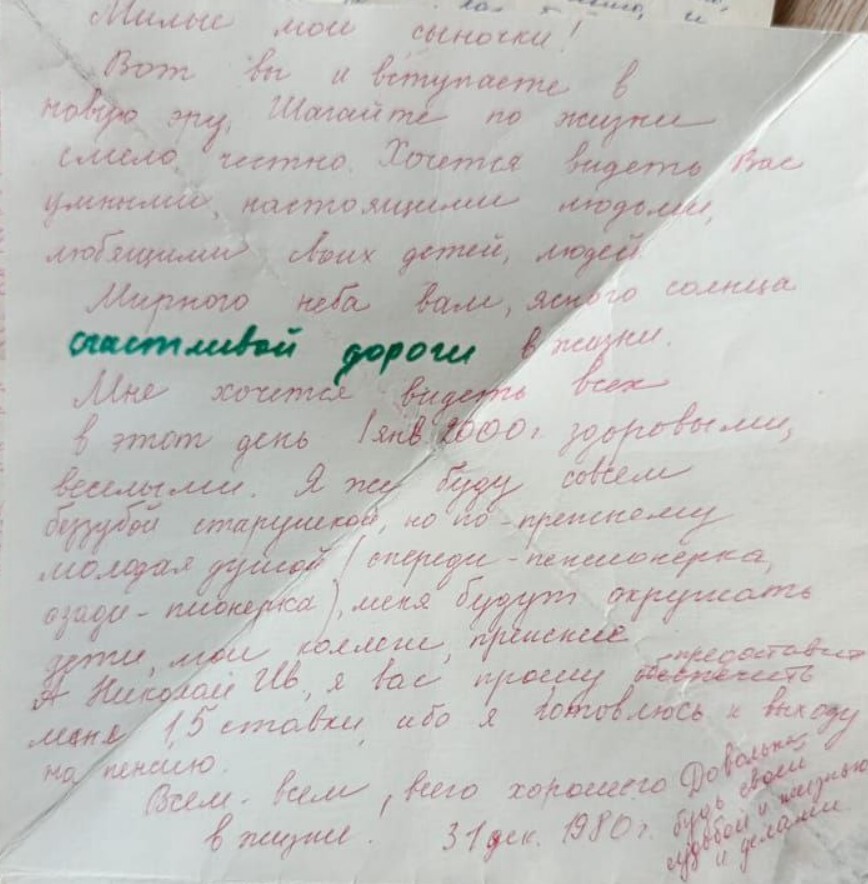 Милые мои сыночки!
Вот вы и вступаете в
новую эру. Шагайте по жизни
смело, честно. Хочется видеть Вас
умными, настоящими людьми,
любящими своих детей, людей.
Мирного неба вам, ясного солнца
счастливой дороги в жизни.
Мне хочется видеть всех
в этот день 1 янв 2000 г. здоровыми,
веселыми. Я же буду совсем
беззубой старушкой, но по-прежнему
молодая душой (спереди - пенсионерка,
сзади - пионерка), меня будут окружать
дети, мои коллеги, прежние
предоставить
А Николай Ив, я вас прошу обеспечить
меня 1,5 ставки, ибо я готовлюсь к выходу
на пенсию.
Всем-всем, всего хорошего
в жизни. 31 дек. 1980 г.
Довольна
будь своей
судьбой и жизнью
и делами